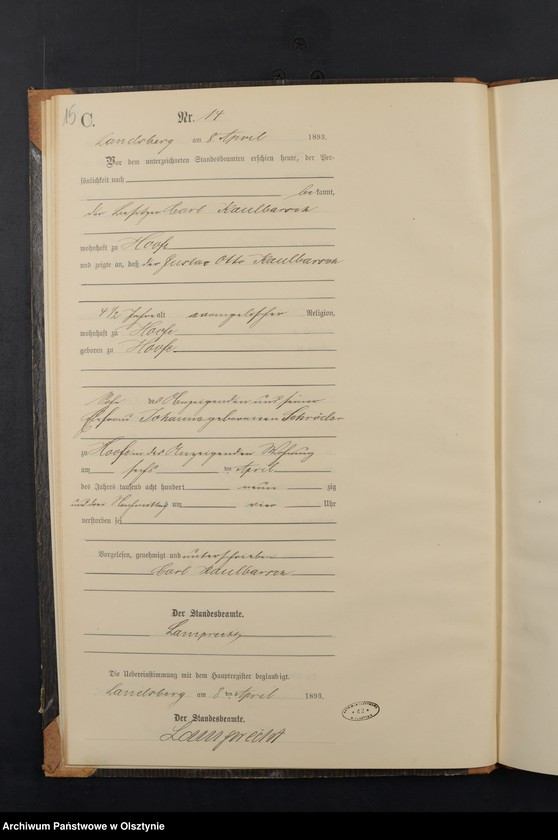 15 C. Nr. 14
Landsberg am 8 April 1893.
Vor dem unterzeichneten Standesbeamten erschien heute, der Per-
sönlichkeit nach
bekannt,
der Besitzer Carl Kaulbarsch
wohnhaft zu Hoofe
und zeigte an, daß der Gustav Otto Kaulbarsch
4 1/2 Jahre alt evangelischer Religion,
wohnhaft zu Hoofe
geboren zu Hoofe
Sohn des Anzeigenden und seiner
Ehefrau Johanna geborenen Schröder
zu Hoofe in des Anzeigenden Wohnung
am sechs ten April
des Jahres tausend acht hundert neun zig
und drei Nachmittags um vier Uhr
verstorben sei
Vorgelesen, genehmigt und unterschrieben
Carl Kaulbarsch
Der Standesbeamte.
Lamprecht
Die Uebereinstimmung mit dem Hauptregister beglaubigt.
Landsberg am 8 ten April 1893.
Der Standesbeamte.
Lamprecht
Archiwum Państwowe w Olsztynie